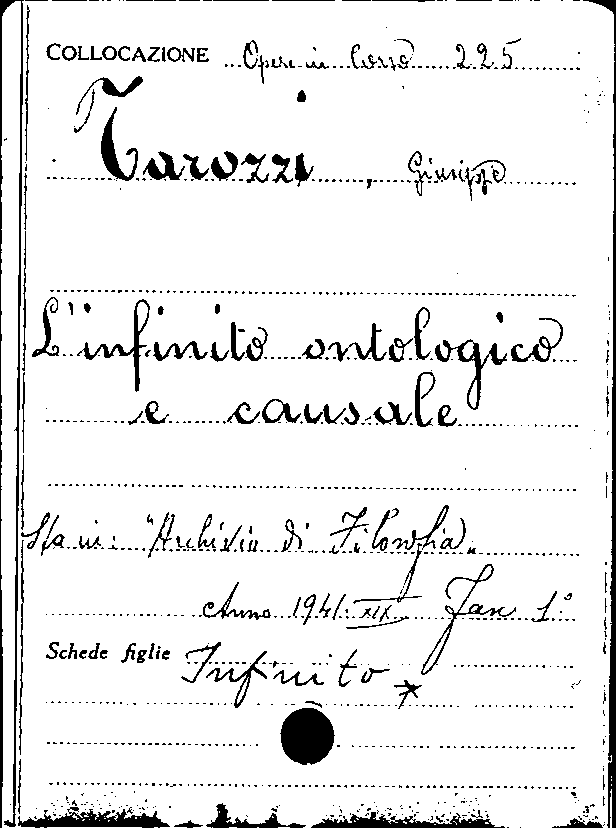 COLLOCAZIONE Opere in Corso 225
Tarozzi, Giuseppe
L'infinito ontologico
e causale
Sta in: "Archivio di Filosofia„
Anno 1941-XIX Fasc 1°
Schede figlie Infinito *